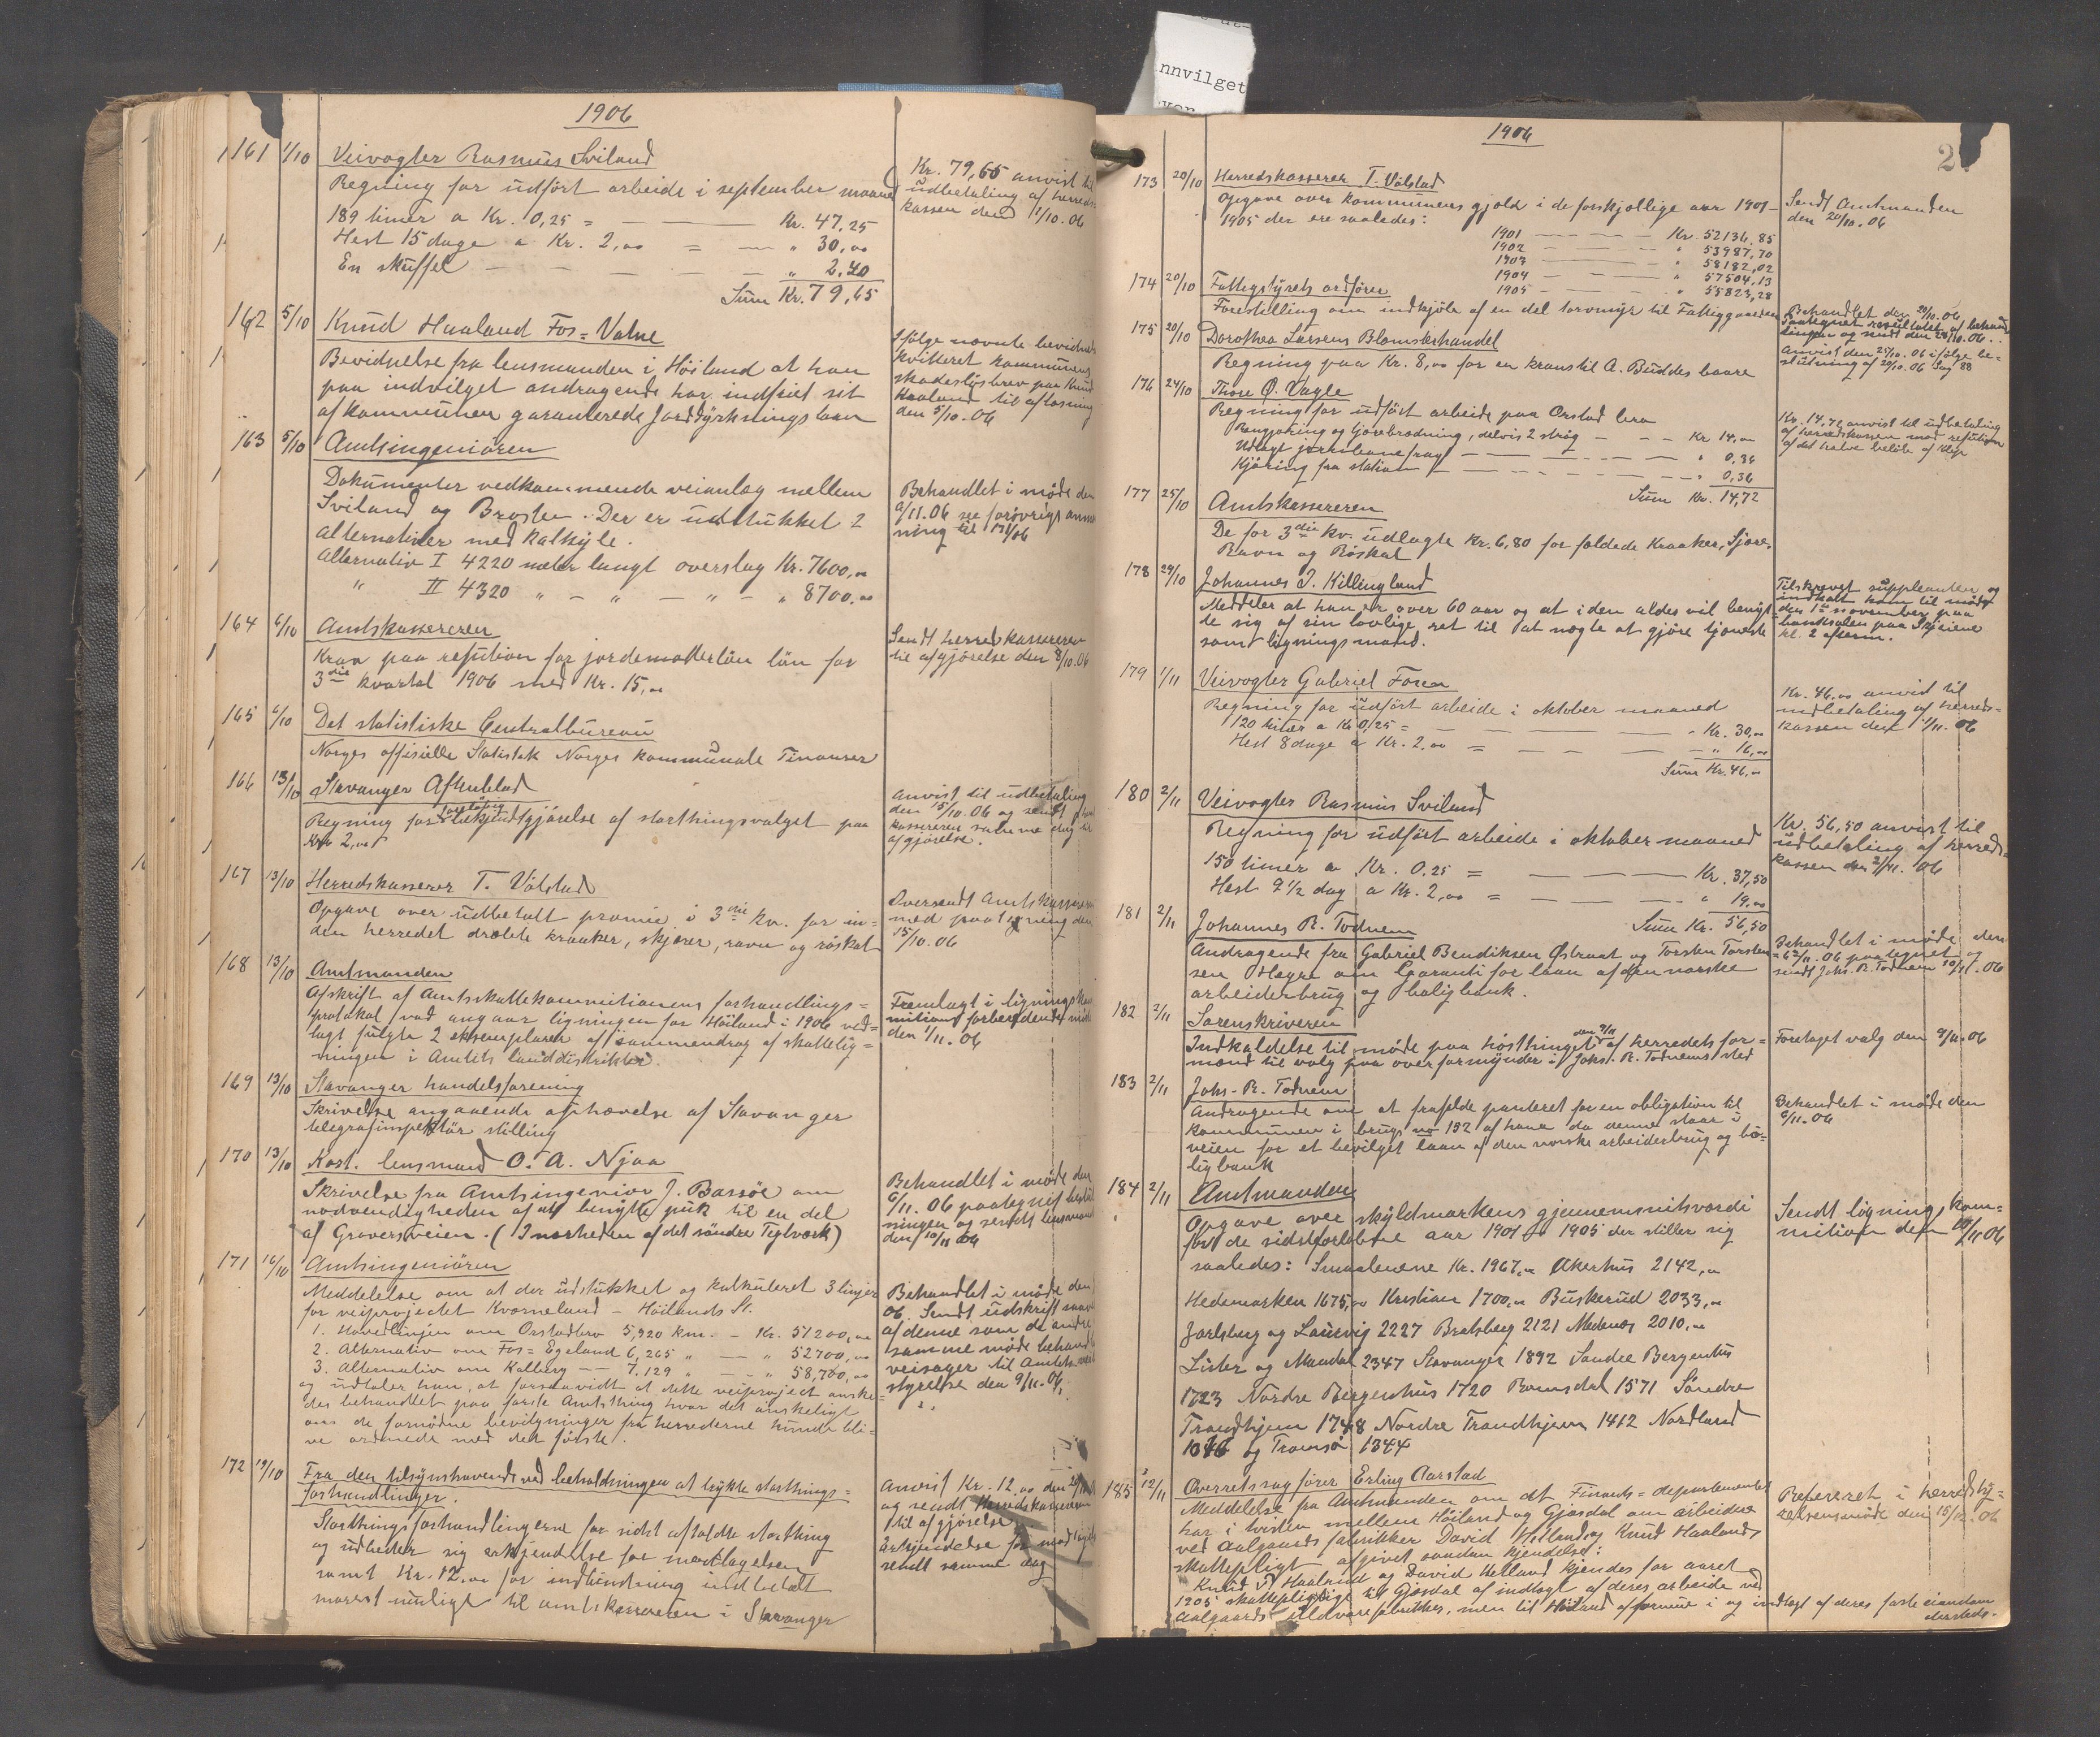 nnvilget
1906
161 1/10 Veivogter Rasmus Sviland
Regning for udført arbeide i september maaned
189 timer a Kr. 0,25 = Kr. 47,25
Hest 15 dage a Kr. 2,00 = " 30,00
En skuffel " 2,40
Sum Kr. 79,65
Kr. 79,65 anvist til
udbetaling af herreds-
kassen den 1/10.06
162 5/10 Knud Haaland Fos=Vatne
Bevidnelse fra lensmanden i Høiland at han
paa indvilget andragende har indfriet sit
af kommunen garanterede Jorddyrkningslaan
Ifølge nævnte bevidnelse
kvitteret kommunens
skadesløsbrev paa Knud
Haaland til aflæsning
den 5/10.06
163 5/10 Amtsingeniøren
Dokumenter vedkommende veianlæg mellem
Sviland og Brosten. Der er udstukket 2
alternativer med kalkyle.
Alternativ I 4220 meter langt overslag Kr. 7600,00
" II 4320 " " " " 8700,00
Behandlet i møde den
9/11.06 see forøvrigt anm
ning til 171/06
164 6/10 Amtskassereren
Krav paa refution for jordemoderløn løn for
3die kvartal 1906 med Kr. 15,00
Sendt herredskassereren
til afgjørelse den 8/10.06
165 6/10 Det statistiske Centralbureau
Norges officielle Statistik Norges kommunale Finanser
166 13/10 Stavanger Aftenblad
Regning for foreløbig bekjendtgjørelse af storthingsvalget paa
Kr 2,00
Anvist til udbetaling
den 15/10.06 og sendt
kassereren samme dag til
afgjørelse.
167 13/10 Herredskasserer T. Vølstad
Opgave over udbetalt præmie i 3die kv. for in=
den herredet dræbte kraaker, skjærer, ravn og røskat
Oversendt Amtskassereren
med paategning den
15/10.06
168 13/10 Amtmanden
Afskrift af Amtsskattekommitionens forhandlings=
protokol hvad angaar ligningen for Høiland i 1906 ved=
lagt fulgte 2 eksemplarer af sammendrag af skattelig=
ningen i Amtets landdistrikter.
Fremlagt i ligningskom
mitions forberedende møde
den 1/11.06
169 13/10 Stavanger handelsforening
Skrivelse angaaende ophævelse af Stavanger
telegrafinspektør stilling
170 13/10 Kost. lensmand O. A. Njaa
Skrivelse fra Amtsingeniør J. Bassøe om
nødvendigheden af at benytte puk til en del
af Graversveien. (I nærheden af det søndre Teglværk)
Behandlet i møde den
6/11.06 paategnet beslut
ningen og sendt lensmand
den 10/11 06
171 16/10 Amtsingeniøren
Meddelelse om at der udstukket og kalkuleret 3 linjer
for veiprojectet Kværneland - Høilands St.
1. Hovedlinjen om Orstadbro 5,920 km. - Kr. 51200,00
2. Alternativ om Fos=Egeland 6,265 " — " 52700,00
3. Alternativ om Kalberg — 7,129 " — " 58,700,00
og udtaler han, at forsaavidt at dette veiproject ønske=
des behandlet paa første Amtsthing hvor det ønskeligt
om de fornødne bevilgninger fra herrederne kunde bli=
ve ordnede med det første.
Behandlet i møde den
06. Sendt udskrift saavel
af denne som de andre
samme møde behandlede
veisager til Amtets vei
styrelse den 9/11.06
172 19/10 Fra den tilsynshavende ved beholdningen at trykte storthings=
forhandlinger.
Storthingsforhandlingerne for sidst afholdte storthing
og udbeder sig erkjendelse for modtagelsen
samt Kr. 12.00 for indbinding indbetalt
snarest muligt til amtskassereren i Stavanger
Anvist Kr. 12,00 den
og sendt Herredskassereren
til afgjørelse
Erkjendelse for modtagelse
sendt samme dag
1906
2
173 20/10 Herredskasserer T. Vølstad
Opgave over kommunens gjæld i de forskjellige aar 1901-
1905 der ere saaledes:
1901 Kr. 52136,85
1902 " 53987,70
1903 " 58182,02
1904 " 57504,13
1905 " 55823,28
Sendt Amtmanden
den 20/10.06
174 20/10 Fattigstyrets ordfører
Forestilling om indkjøb af en del torvmyr til Fattiggaarden
Behandlet den 20/10.06
Paategnet resultatet af behand
lingen og sendt den 24/10.06.
175 20/10 Dorothea Larsens Blomsterhandel
Regning paa Kr. 8,00 for en krans til A. Buddes baare
Anvist den 25/10.06 ifølge be-
slutning af 20/10.06 Sag 88
176 24/10 Thore Ø. Vagle
Regning for udført arbeide paa Orstad bro
Rengjøring og tjærebrædning, delvis 2 strøg Kr 14,00
Udlagt jernbanefragt " 0,36
Kjøring fra station " 0,36
Sum Kr. 14,72
Kr. 14,72 anvist til udbetaling
af herredskassen mod refution
af det halve beløb af Klep
177 25/10 Amtskassereren
De for 3die kv. udlagte Kr. 6,80 for fældede Kraaker, Sjære,
Ravn og Røskat
178 29/10 Johannes J. Killingland
Meddeler at han er over 60 aar og at i den aldes vil benyt=
te sig af sin lovlige ret til at nægte at gjøre tjeneste
som ligningsmand.
Tilskrevet suppleanten og
indkaldt ham til møde
den 1ste november paa
banksalen paa Skjeiene
kl. 2 efterm.
179 1/11 Veivogter Gabriel Foren
Regning for udført arbeide i oktober maaned
120 timer a Kr 0,25 = Kr. 30,00
Hest 8 dage a Kr. 2,00 = " 16,00
Sum Kr. 46,00
Kr. 46,00 anvist til
udbetaling af herreds=
kassen den 1/11.06
180 2/11 Veivogter Rasmus Sviland
Regning for udført arbeide i oktober maaned
150 timer a Kr. 0,25 = Kr. 37,50
Hest 9 1/2 dag a Kr. 2,00 = " 19,00
Sum Kr. 56,50
Kr. 56,50 anvist til
udbetaling af herreds=
kassen den 2/11.06
181 2/11 Johannes R. Todnem
Andragende fra Gabriel Bendiksen Østraat og Torsten Torsten=
sen Høgre om Garanti for laan af den norske
arbeiderbrug og boligbank.
Behandlet i møde den
6/11.06 paategnet og
sendt Johs. R. Todnem 10/11.06
182 2/11 Sorenskriveren
Indkaldelse til møde paa høsthinget den 9/11 af herredets for=
mænd til valg paa overformynder i Johs. R. Todnems sted
Foretaget valg den 9/11.06
183 2/11 Johs. R. Todnem
Andragende om at frafalde panteret for en obligation til
kommunen i brugs no 192 af Hana da denne staar i
veien for et bevilget laan af den norske arbeiderbrug og bo=
ligbank
Behandlet i møde den
6/11.06
184 2/11 Amtmanden
Opgave over skyldmarkens gjennemsnitsværdi
for de sidstforløbne aar 1901 - 1905 der stiller sig
saaledes: Smaalenene Kr. 1967,00 Akershus 2142,00
Hedemarken 1675,00 Kristian 1700,00 Buskerud 2033,00
Jarlsberg og Laurvig 2227 Bratsberg 2121 Nedenæs 2010,00
Lister og Mandal 2347 Stavanger 1892 Søndre Bergenhus
1723 Nordre Bergenhus 1720 Romsdal 1571 Søndre
Trondhjem 1748 Nordre Trondhjem 1412 Nordland
og Tromsø 1344
Sendt lignings kom=
mition den 10/11 06
185 12/11 Overretssagfører Erling Aarstad
Meddelelse fra Amtmanden om at Finants=departementet
har i tvisten mellem Høiland og Gjesdal om arbeiderne
ved Aalgaards fabrikker David Helland og Knud Haalands
skattepligt afgivet saadan kjendelse:
Knud Haaland og David Helland kjendes for aaret
1905 skattepligtige til Gjesdal af indtægt af deres arbeide ved
Aalgaards Uldvarefabrikker, men til Høiland af formue i og indtægt af deres faste eiendom
dersteds.
Refereret i herredsty=
relsesmøde den 15/12.06